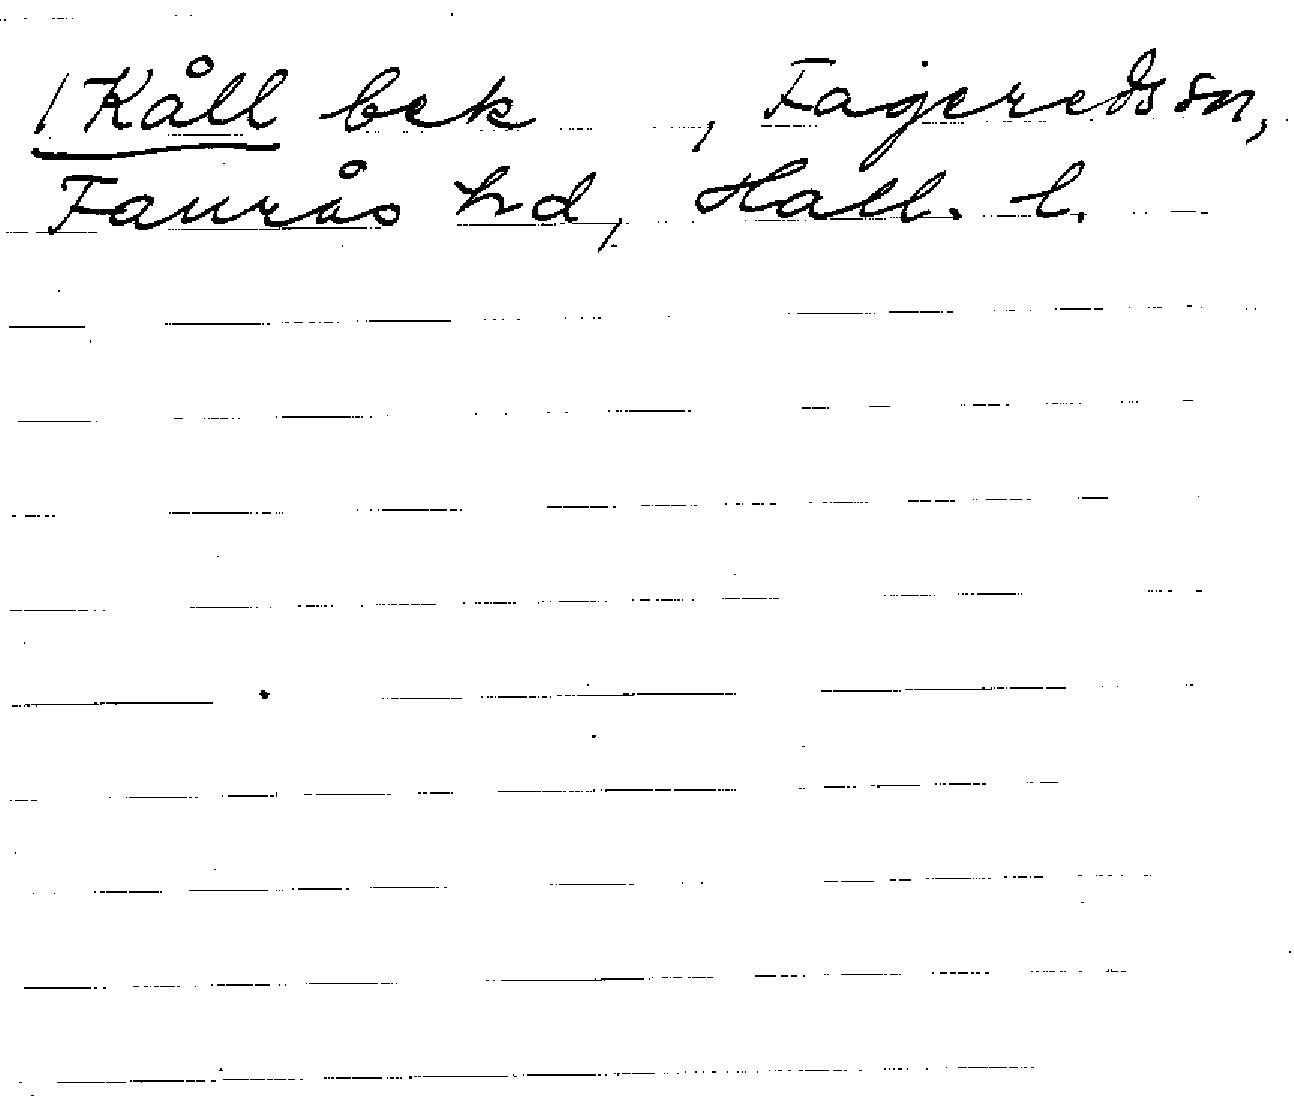 /Kåll bek , Fagereds sn,
Faurås hd, Hall. l.